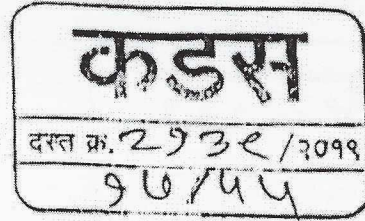 कडस
दस्त क्र. २१३९/२०१९
१७/५५